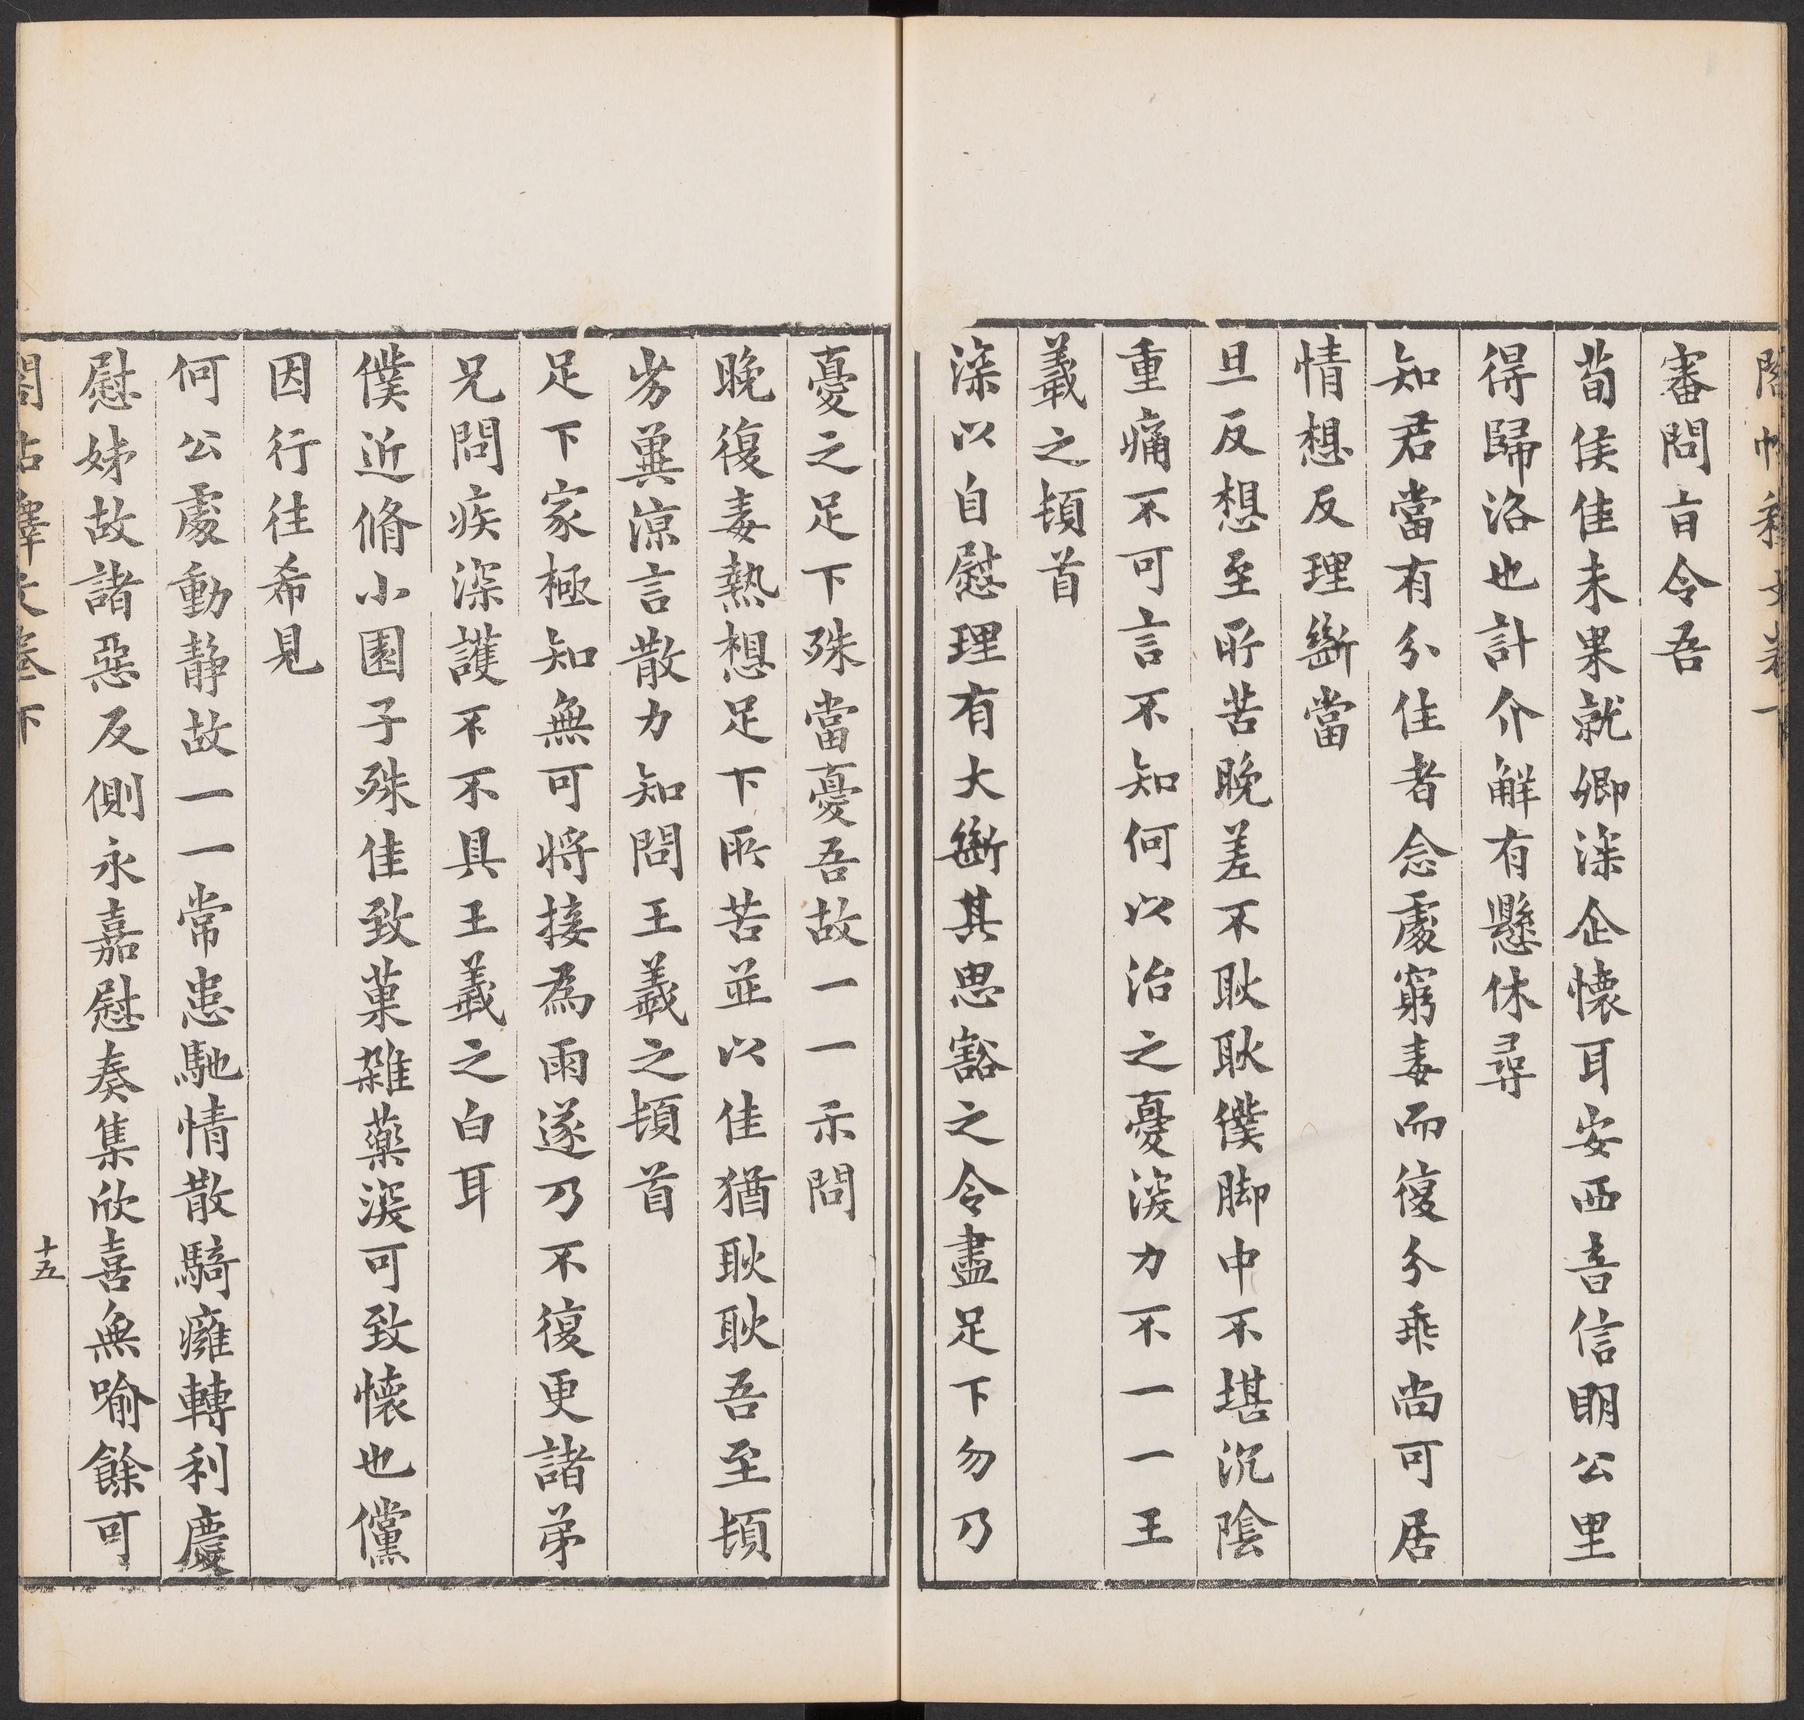 閣帖釋文卷下
審問盲令吾
荀侯佳未果就卿深企懷耳安西音信明公里
得歸洛也計介解有懸休尋
知君當有分住者念處窮毒而復分乖尚可居
情想反理斷當
旦反想至所苦晚差不耿耿僕脚中不堪沉陰
重痛不可言不知何以治之憂深力不一一王
羲之頓首
深以自慰理有大斷其思豁之令盡足下勿乃
憂之足下殊當憂吾故一一示問
晚復毒熱想足下所苦並以佳猶耿耿吾至頓
劣冀涼言散力知問王羲之頓首
足下家極知無可將接為雨遂乃不復更諸弟
兄問疾深護不不具王羲之白耳
僕近脩小園子殊佳致菓雜藥深可致懷也儻
因行往希見
何公處動靜故一一常患馳情散騎癰轉利慶
慰姊故諸惡反側永嘉慰奏集欣喜無喻餘可
閣帖釋文卷下
十五